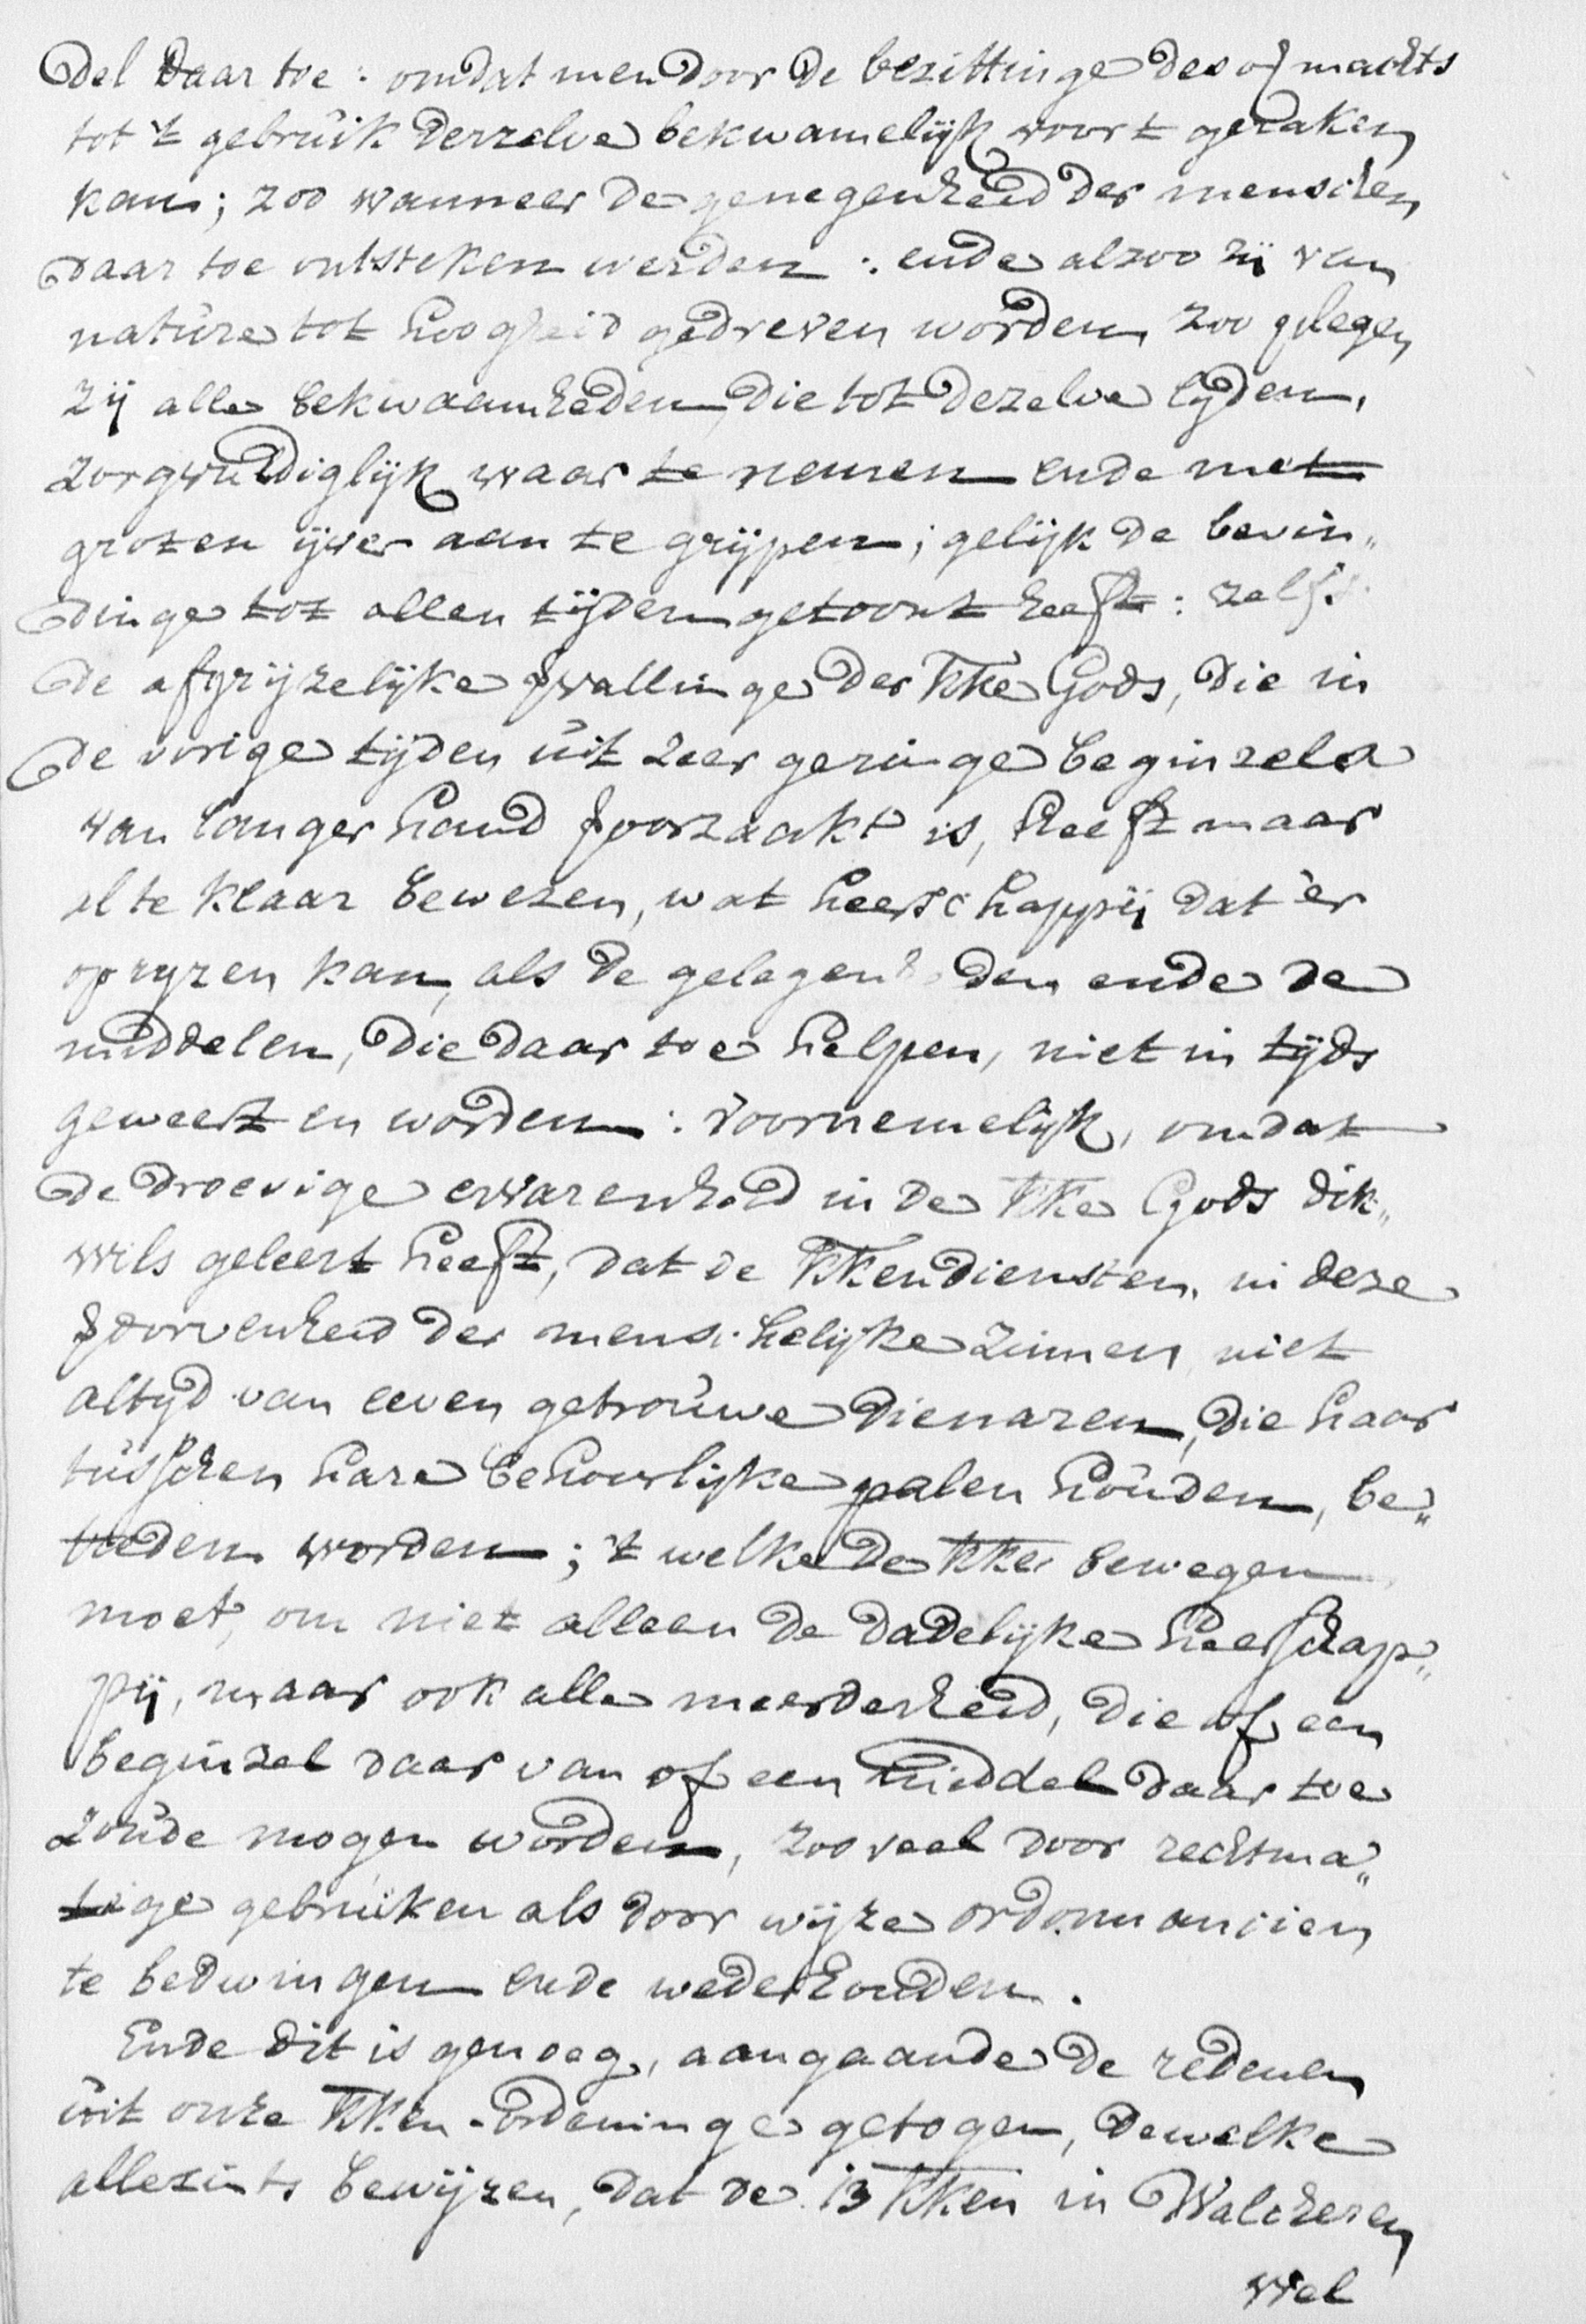 del daar toe: omdat men door de bezittinge des of machts
tot 't gebruik derzelve bekwamelijk voort geraken
kan; zoo wanneer de genegenheid der menschen
daar toe ontsteken werden: ende alzoo zij van
nature tot hoogheid gedreven worden, zoo plegen
zij alle bekwaamheden, die tot dezelve lijden,
zorgvuldiglijk waar te nemen ende met
groten ijver aan te grijpen; gelijk de bevin„
dinge tot allen tijden getoont heeft: zelfs
de afgrijzelijke vallinge der kke Gods, die in
de vorige tijden uit zeer geringe beginzels
van langer hand oorzaakt is, heeft maar
al te klaar bewezen, wat heerschappij dat 'er
opryzen kan, als de gelegenheden ende de
middelen, die daar toe helpen, niet in tijds
geweert en worden: voornemelijk, omdat
de droevige ervarenheid in de kke Gods dik„
wils geleert heeft, dat de kkendiensten, in deze
dorvenheid der menschelijke zinnen, niet
altijd van eeven getrouwe dienaren, die haar
tusschen hare behoorlijke palen houden, be„
kleden worden; 't welke de kke bewegen
moet, om niet alleen de dadelijke heerschap„
pij, maar ook alle meerderheid, die of een
beginzel daar van of een middel daar toe
zoude mogen worden, zoo veel door rechtma„
tige gebruiken als door wijze ordonnancien
te bedwingen ende wederhouden.
Ende dit is genoeg, aangaande de redenen
uit onze kken-ordeninge getogen, dewelke
allezints bewijzen, dat de 13 kken in Walcheren
wel